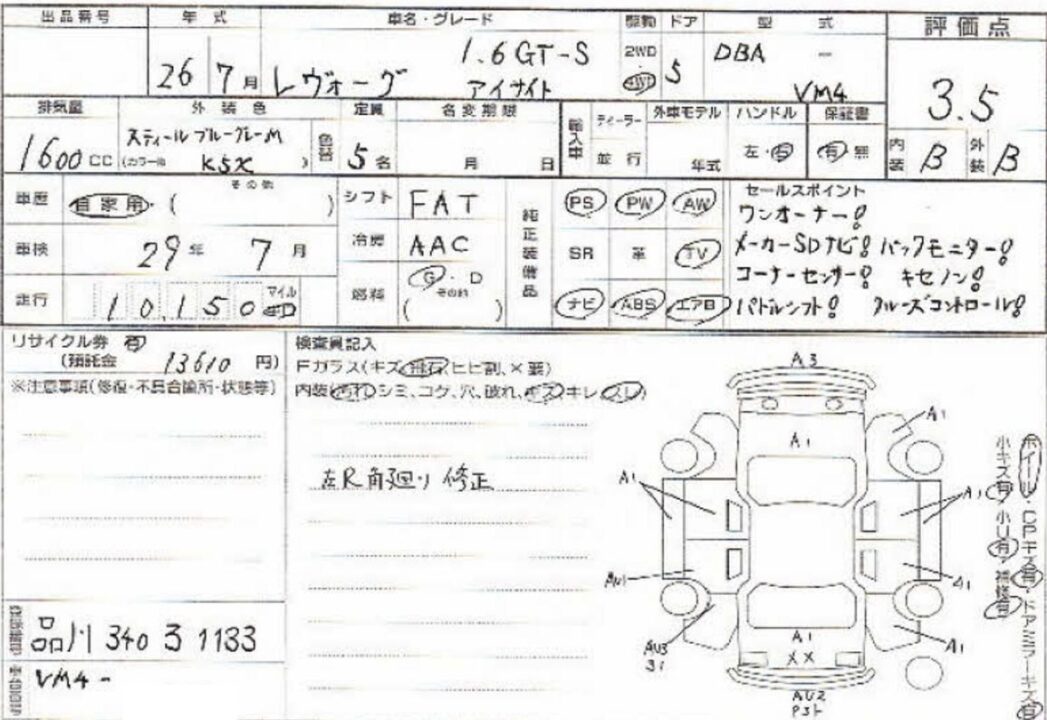 出品番号 年 式 車名・グレード 駆動 ドア 型 式 評価点
26 7月 レヴォーグ 1.6 GT-S アイサイト 2WD 4WD 5 DBA - VM4 3.5
排気量 外 装 色 定員 名変期限 輸入車 ディーラー 外車モデル ハンドル 保証書
1600 CC スティールブルーグレーM (カラーNo K5X) 色替 5名 月 日 並 行 年式 左・右 有 無 内装 B 外装 B
車歴 自家用・( その他 ) シフト FAT 純正装備品 PS PW AW セールスポイント
ワンオーナー!
車検 29年 7月 冷房 AAC SR 革 TV メーカーSDナビ! バックモニター!
コーナーセンサー! キセノン!
走行 10,150 マイル 燃料 G・D その他 ( ) ナビ ABS エアB パドルシフト! クルーズコントロール!
リサイクル券 有
(預託金 13610 円)
※注意事項(修復・不具合箇所・状態等)
検査員記入
Fガラス(キズ、飛石、ヒビ割、×要)
内装(汚れ、シミ、コゲ、穴、破れ、キズ、キレ、スレ)
左R角廻り修正
A3
A1
A1
A1
A1
AU1
A1
AU3
S1
A1
A1
XX
AU2
P3ト
ホイール・CPキズ有・ドアミラーキズ有
小キズ有 小U有 補修有
品川 340 ろ 1133
VM4 -